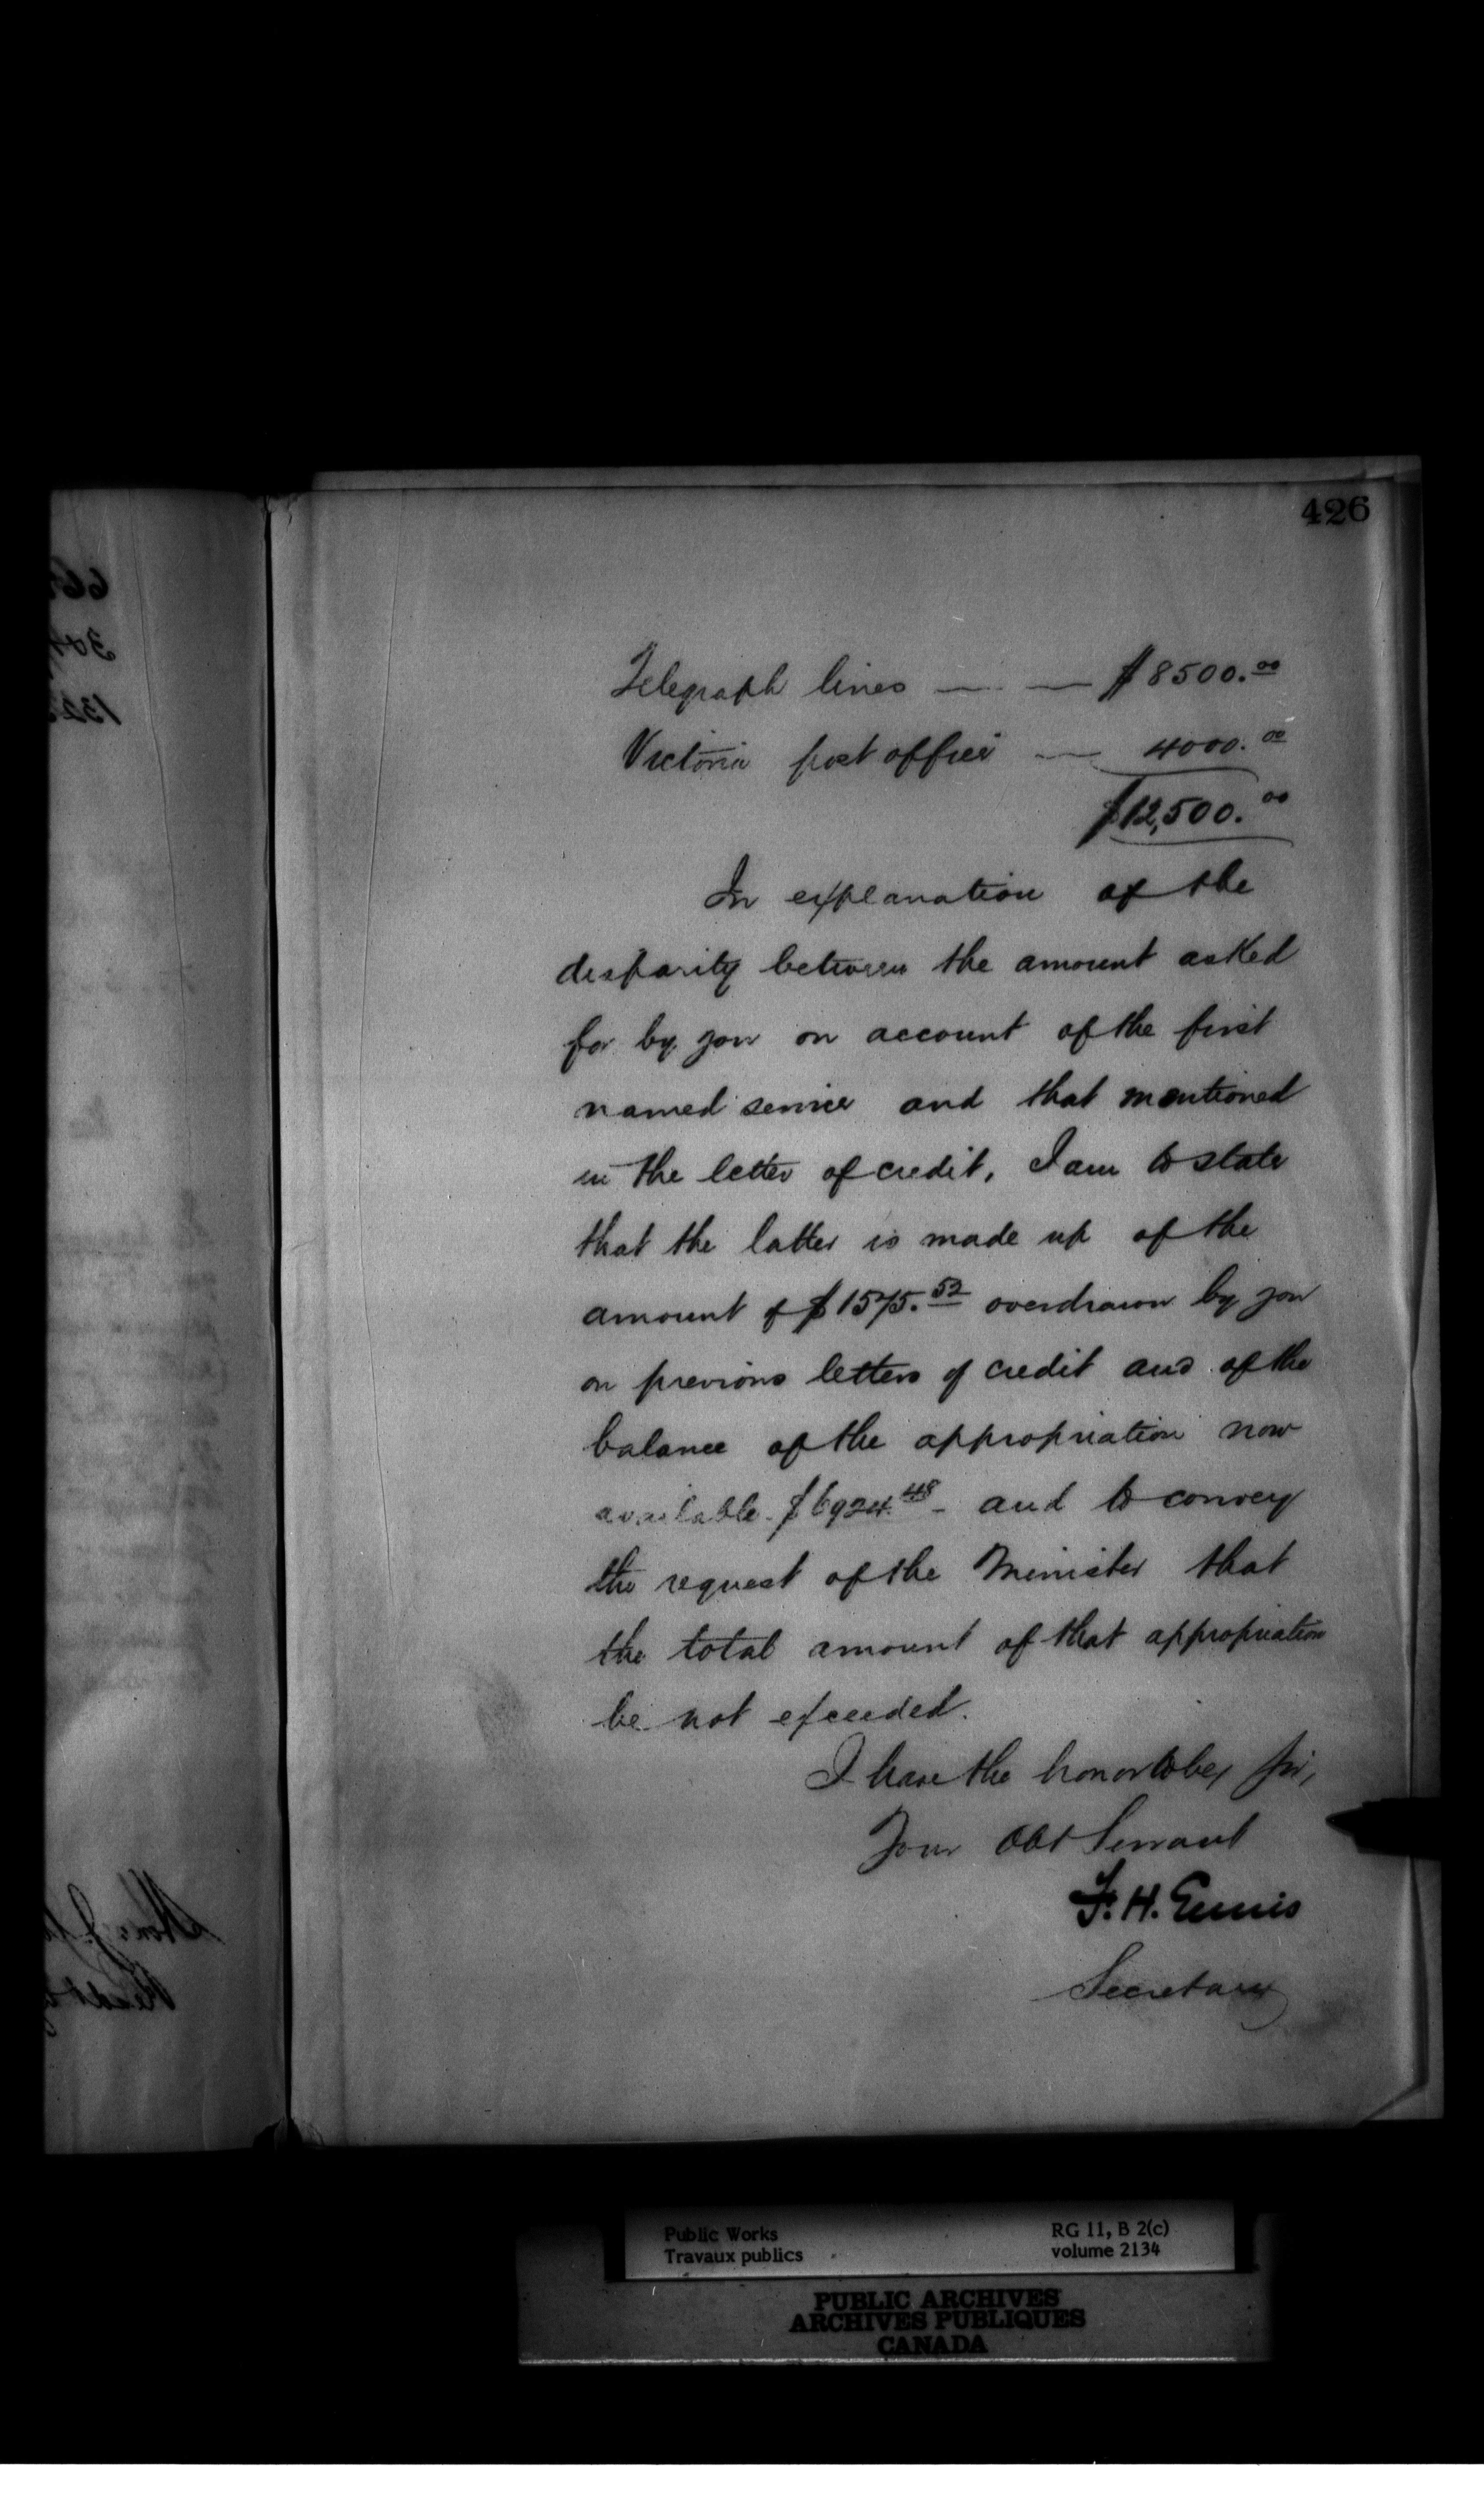 426
Telegraph lines — — $8500.00
Victoria post office — 4000.00
$12,500.00
In explanation of the
disparity between the amount asked
for by you on account of the first
named service and that mentioned
in the letter of credit, I am to state
that the latter is made up of the
amount of $1575.52 overdrawn by you
on previous letters of credit and of the
balance of the appropriation now
available - $6924.48 - and to convey
the request of the Minister that
the total amount of that appropriation
be not exceeded.
I have the honor to be, Sir,
Your Obt Servant
F. H. Ennis
Secretary
Public Works
Travaux publics
RG 11, B 2(c)
volume 2134
PUBLIC ARCHIVES
ARCHIVES PUBLIQUES
CANADA